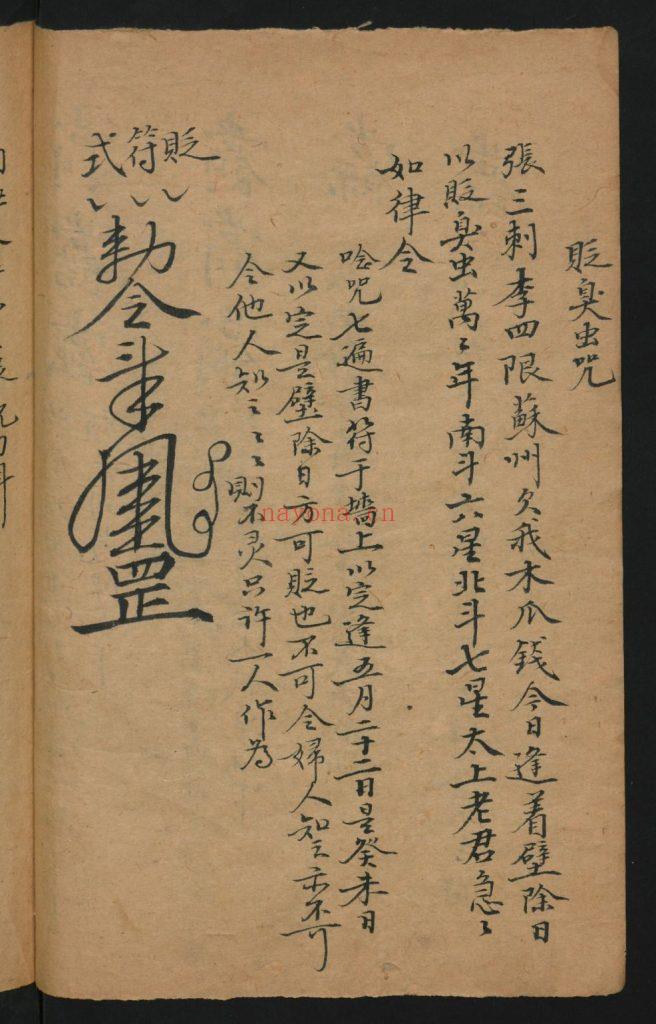 貶臭虫咒
張三刺李四限蘇州欠我木瓜錢今日逢着壁除日
以貶臭虫萬〻年南斗六星北斗七星太上老君急〻
如律令
唸咒七遍書符于墻上以完逢五月二十二日是癸未日
又以完是壁除日方可貶也不可令婦人知之亦不可
令他人知之〻〻則不灵只許一人作為
貶符式
勅令
罡
nayona.cn